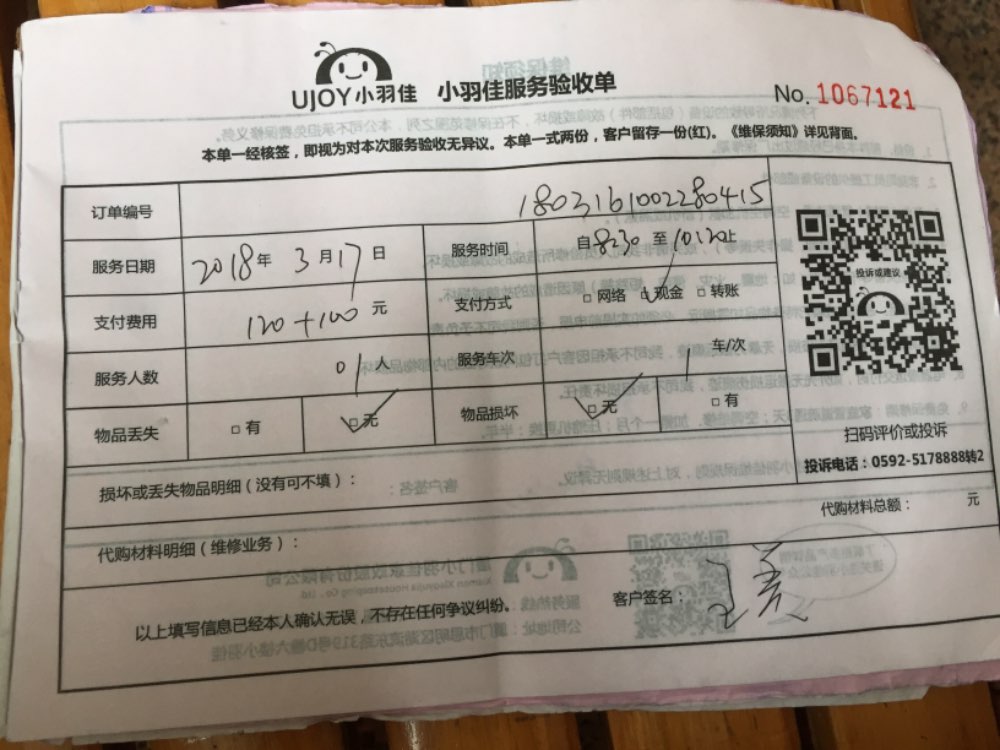 UJOY小羽佳 小羽佳服务验收单
No. 1067121
本单一经核签，即视为对本次服务验收无异议。本单一式两份，客户留存一份(红)。《维保须知》详见背面。
订单编号 1803161002280415
服务日期 2018年 3月17日 服务时间 自8:30至10:20止
支付费用 120+100 元 支付方式 □网络 □现金 □转账
服务人数 01人 服务车次 车/次
物品丢失 □有 □无 物品损坏 □无 □有
投诉或建议
扫码评价或投诉
投诉电话：0592-5178888转2
损坏或丢失物品明细（没有可不填）：
代购材料明细（维修业务）：
代购材料总额： 元
以上填写信息已经本人确认无误，不存在任何争议纠纷。
客户签名：